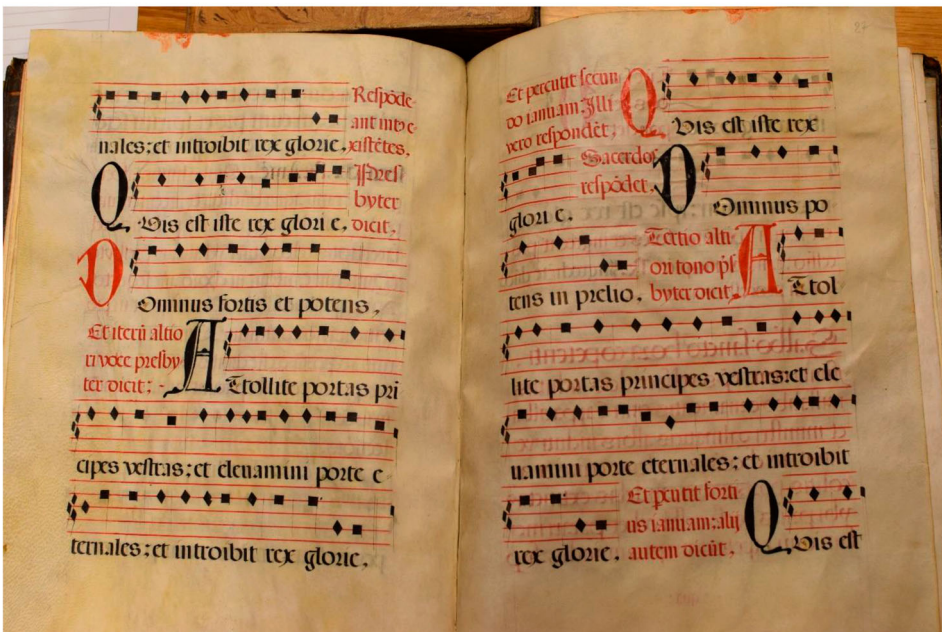 nales: et introibit rex glorie,
Respōde
ant intꝰ e
xistētes,
Qvis est iste rex glori e,
Pres
byter
dicit,
Dominus fortis et potens,
Et iterū altio
ri voce presby
ter dicit: -
Attollite portas pri
cipes vestras: et eleuamini porte e
ternales: et introibit rex glorie,
Et percutit secun
do ianuam Illi
vero respondēt,
Qvis est iste rex
glori e.
Sacerdos
respōdet.
Dominus po
tens in prelio,
Tertio alti
ori tono p̄s
byter dicit,
Attol
lite portas principes vestras: et ele
uamini porte eternales: et introibit
rex glorie,
Et pcutit forti
us ianuam: alij
autem dicūt,
Qvis est